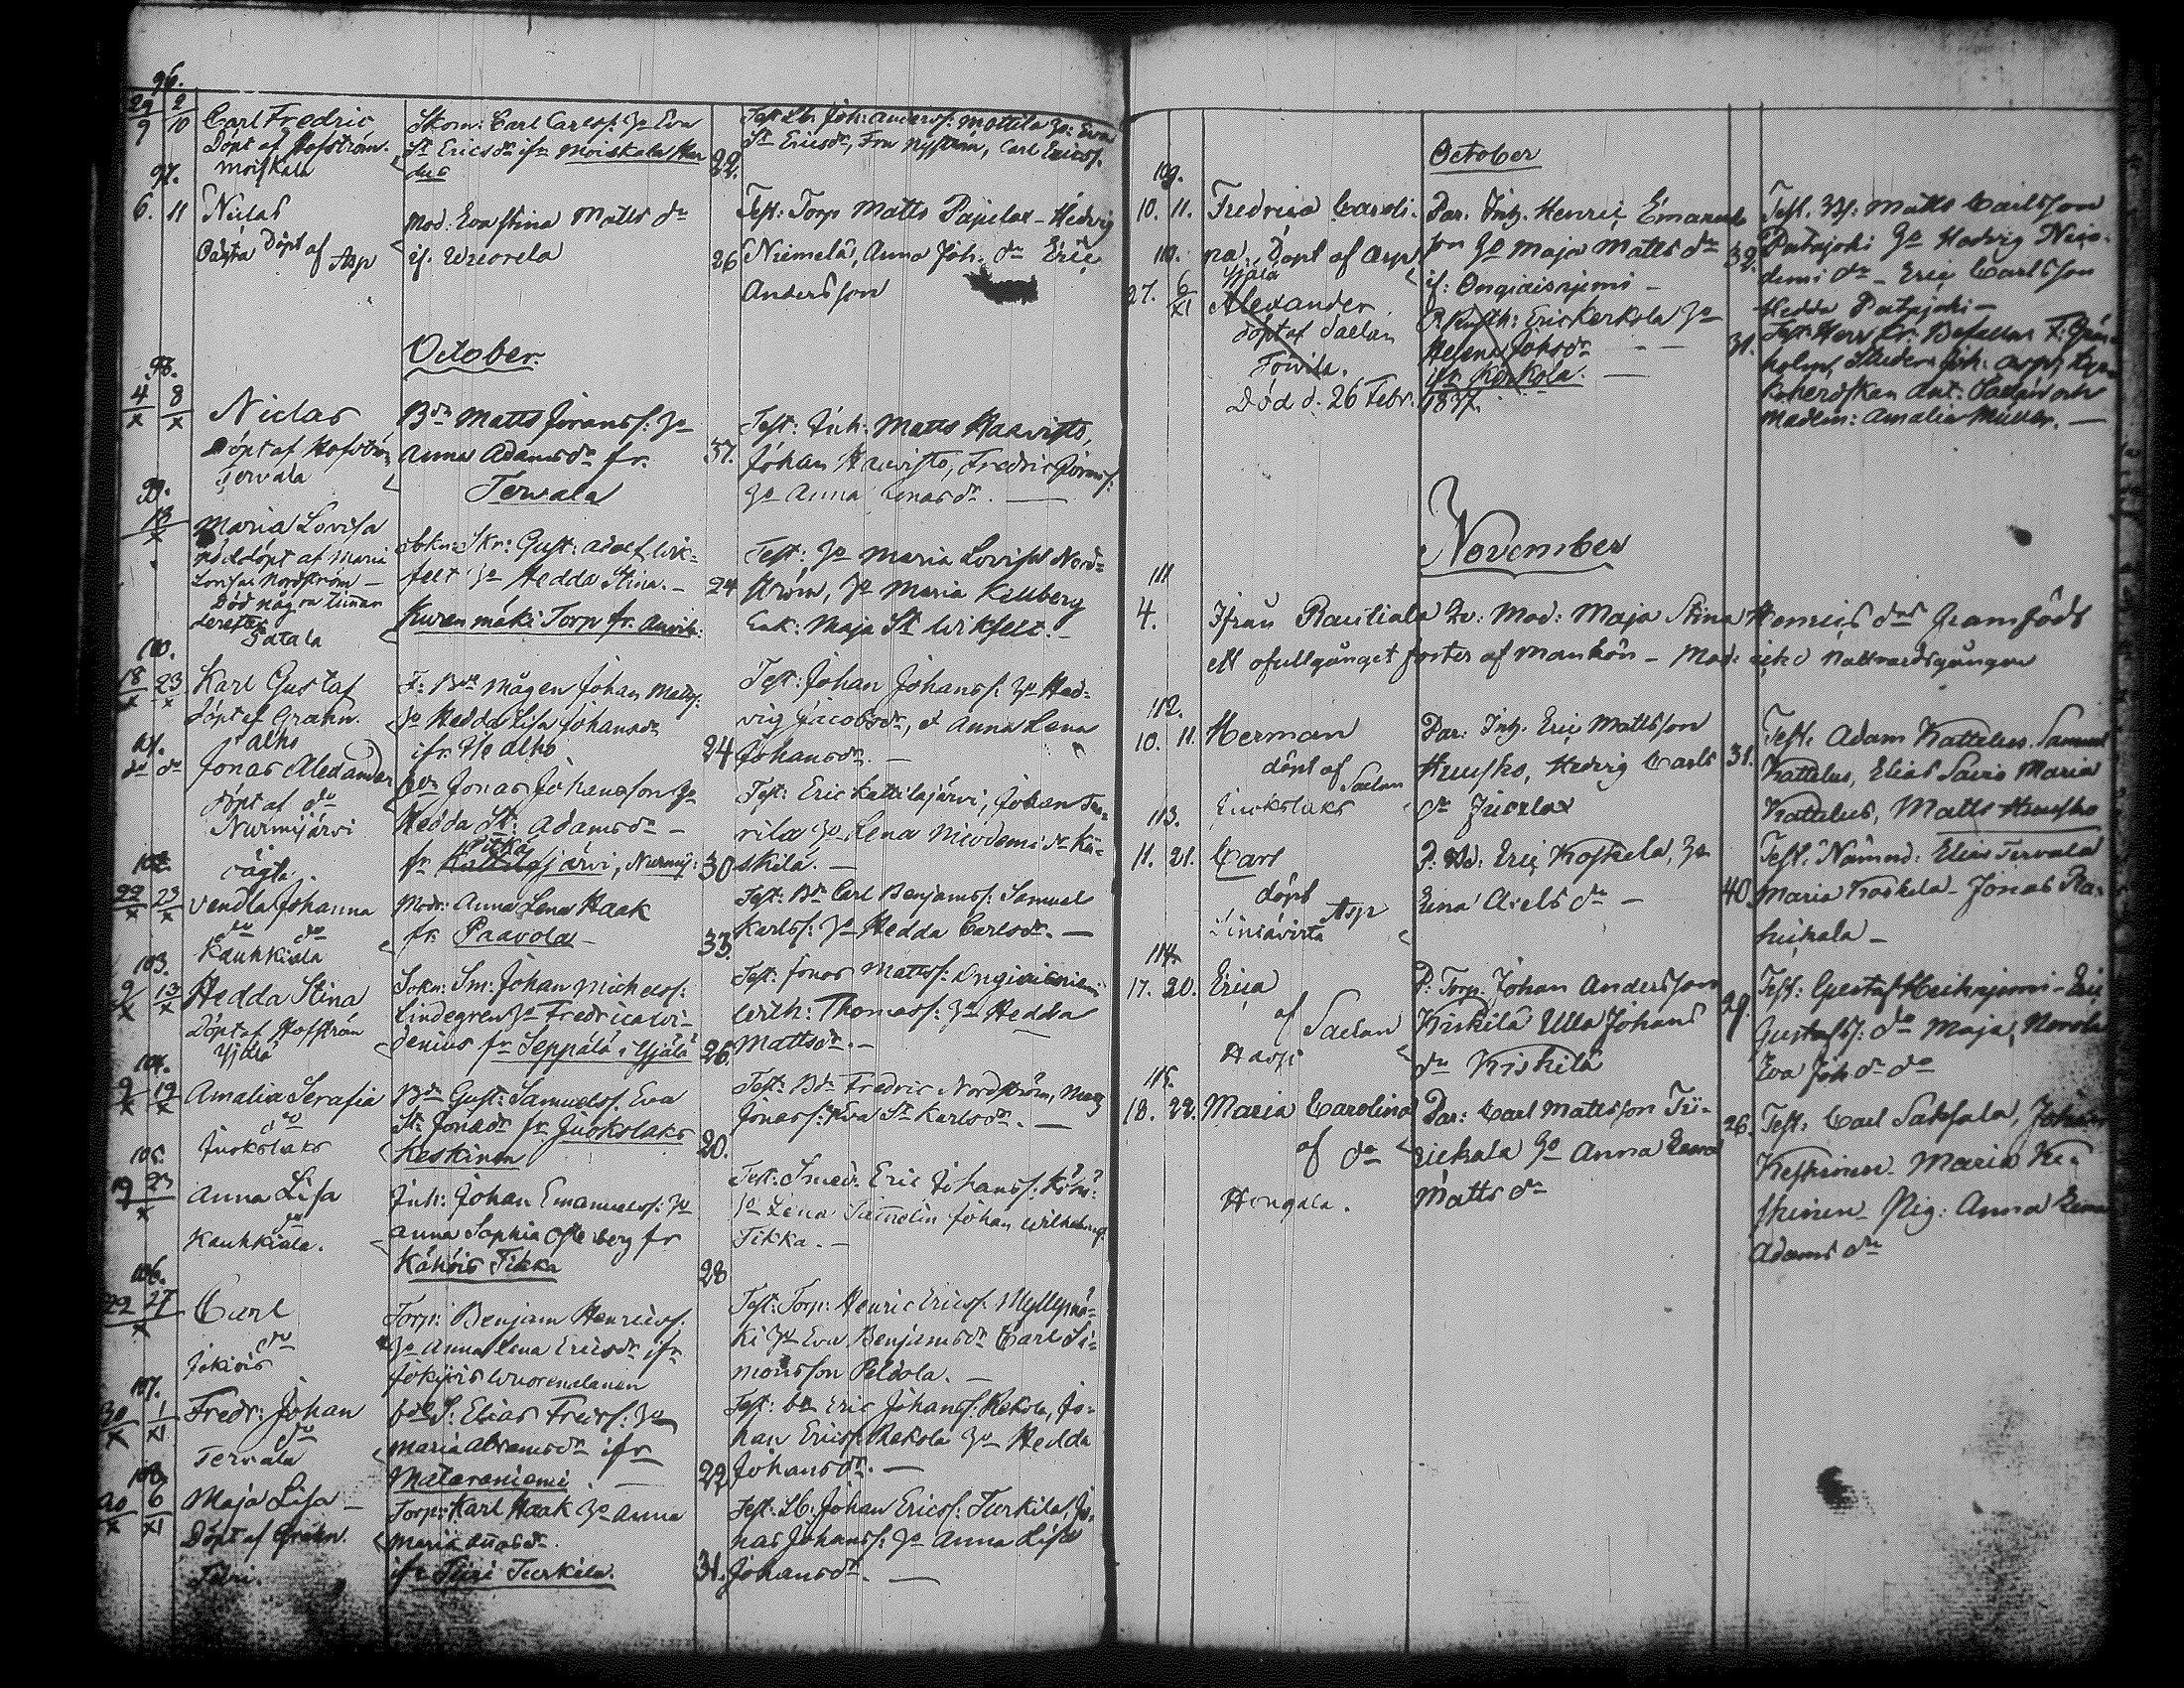 96.
29/9 2/10 Carl Fredric
Döpt af Hofström.
Moiskala
Skom: Carl Carlsf: Ho Eva
St Ericsdr ifr Moiskala
22.
Test: Lb: Joh: Andersf: Mattila Ho: Eva
St Ericsdr, Fru Nyström, Carl Ericsf.
97.
6. 11 Niclas
Döpt af Asp
Mod: Eva Stina Matts dr
if. Wuorela
26
Test: Torp Matts Papelax - Hedvig
Niemelä, Anna Joh. dr Eric
Andersson
October.
98.
4/x 8/x Niclas
Döpt af Hofström
Tervala
Bdn Matts Göransf: Ho
Anna Adamsdr fr.
Tervala
37.
Test: Inh: Matts Haavisto,
Johan Haavisto, Fredric Göransf:
Ho Anna Jonasdr. —
99.
13/x Maria Lovisa
nöddöpt af Maria
Lovisa Nordström —
Död några timmar
derefter
Satala
Sokn: Skr: Gust: Adolf Wik=
felt Ho Hedda Stina. —
Kurenmäki Torp fr.
24
Test: Ho Maria Lovisa Nord=
ström, Ho Maria Kellberg
Enk: Maja St Wikfelt. —
100.
18/x 23/x Karl Gustaf
Döpt af Grahn.
Talho
Bdn Mågen Johan Matsf:
Ho Hedda Lisa Johansdr
ifr Hedlho
24
Test: Johan Johansf: Ho Hed=
vig Jacobsdr, et Anna Lena
Johansdr. —
101.
do do Jonas Alexander
döpt af do
Nurmijärvi
Bdn Jonas Johansson Ho
Hedda St: Adamsdr —
fr järvi, Nurmij:
30
Test: Eric Kattilajärvi, Johan
rila Ho Lena Nicodemi dr Ki=
skilä. —
102.
oägta.
22/x 23/x Vendla Johanna
do do
Kauhkiala
Modr: Anna Lena Haak
fr. Paavola —
33.
Test: Bdn Carl Benjamsf: Samuel
Karlsf: Ho Hedda Carlsdr. —
103.
9/x 13/x Hedda Stina
Döpt af Hofström
Yjälä
Sokn: Sm: Johan Michelsf:
Lindegren Ho Fredrica Wi=
denius fr Seppälä, Yjälä
26.
Test: Jonas Mattsf: Ongiaisniemi
With: Thomasf: Ho Hedda
Mattsdr. —
104.
9/x 19/x Amalia Serafia
do
Juokslaks
Bdn Gust: Samuelsf: Eva
St Jonadr fr Juokslaks
Keskinen
20.
Test: Bdn Fredric Nordström, Matts
Jonasf: Eva St Karlsdr. —
105.
19/x 23/x Anna Lisa
do
Kauhkiala.
Inh: Johan Emanuelsf: Ho
Anna Sophia Österberg fr
Kähöis Tikka
28
Test: Smed: Eric Johansf:
Ho Lena Samelin Johan Wilhelmsf.
Tikka. —
106.
22/x 27/x Carl
do
Jokiois
Torp: Benjam Henricsf.
Ho Anna Lena Ericsdr ifr
Jokiois
Test: Torp: Henric Ericsf: Myllymä=
ki Ho Eva Benjamsdr Carl Si=
monsson Peldola. —
107.
30/x 1/XI Fredr: Johan
do
Tervala
Elias Fredrsf: Ho
Maria Abramsdr ifr
Mataraniemi. —
22
Test: Bdn Eric Johansf: Rekola, Jo=
han Ericsf: Rekola Ho Hedda
Johansdr. —
108.
20/x 6/XI Maja Lisa —
Döpt af Grahn.
Turi.
Torp: Karl Haak Ho Anna
Maria
ifr Turi Turkila.
31.
Test: Lb: Johan Ericsf: Turkila, Jo,
nas Johansf: Ho Anna Lisa
Johansdr. —
October
109.
10. 11. Fredrica Caroli.
na. Döpt af Asp
Yjälä
Par. Inh. Henric Emanuels
son Ho Maja Matts dr
if: Ongiaisniemi —
32.
Test. Matts Carlsson
Patajoki Ho Hedvig Nico.
demi dr — Eric Carlsson
Hedda Patajoki —
110.
27. 6/XI Alexander
döpt af Saelan
Torvila.
Död d. 26 Febr. 1837.
Erickerkola Ho
Helena Johsdr — —
ifr Kerkola. —
31.
Test: Herr Befallm F: Grön
holm, Studer: Joh: Asp,
Ant: Saelan och
Madlm: Amalia Müller. —
November
111
4. Ifrån Rautiala Qv: Mod: Maja Stina Henrics dr framfödt
ett ofullgånget foster af mankön — Mod: icke nattvardsgången
112.
10. 11. Herman
döpt af Saelan
Juokslaks
Par: Inh. Eric Mattsson
Huusko, Hedvig Carls
dr Jucalax
31.
Test: Adam Kattelus, Samuel
Kattelus, Elias Maria
Kattelus, Matts Huusko
113.
11. 21. Carl
döpt Asp
P. Bd: Eric Koskela, Ho
Lena Axels dr —
40.
Test: Nämnd: Elias Tervala
Maria Koskela — Jonas Ra.
—
114.
17. 20. Erica
af Saelan
Haapi
P: Torp. Johan Andersson
Kiskilä Ulla Johans
dr Kiskilä
29.
Test: Gustaf Heikniemi — Eric
Gustafsf: do Maja,
Eva Joh dr do
115.
18. 22. Maria Carolina
af do
Hongala.
Par: Carl Mattsson
Ho Anna Lena
Matts dr
26.
Test: Carl Saksala, Johan
Keskinen Maria Ke=
skinen — Pig: Anna Lena
Adams dr